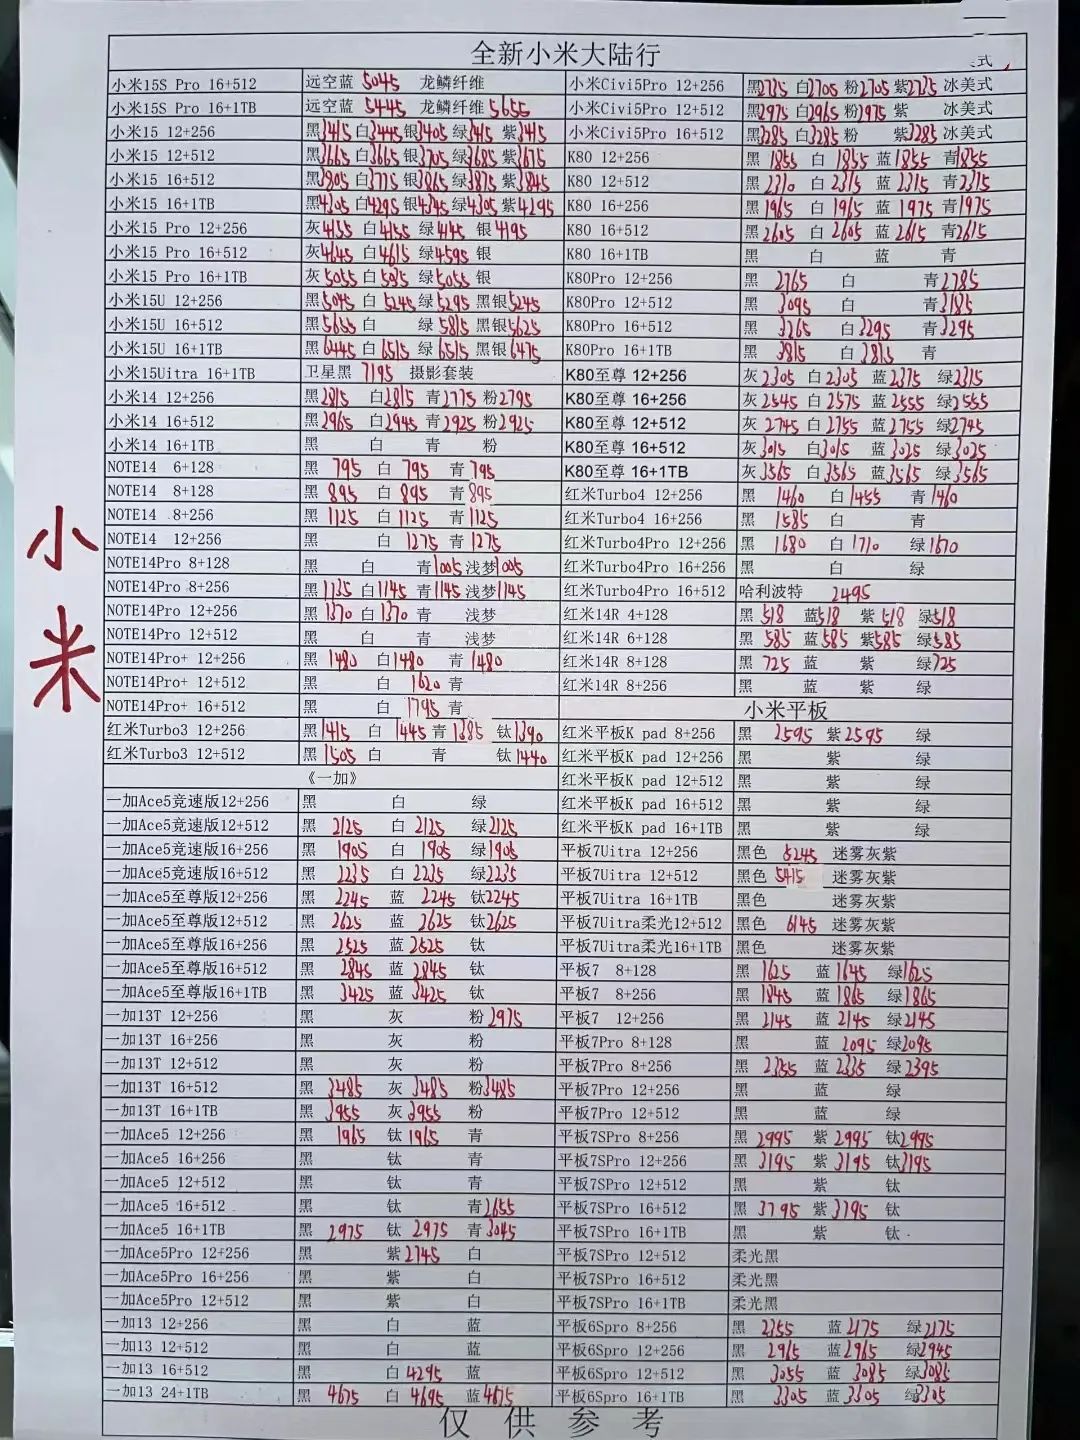 全新小米大陆行
式
小米15S Pro 16+512 远空蓝 5045 龙鳞纤维 小米Civi5Pro 12+256 黑2735 白2705 粉2705 紫2735 冰美式
小米15S Pro 16+1TB 远空蓝 5445 龙鳞纤维 5655 小米Civi5Pro 12+512 黑2975 白2965 粉2975 紫 冰美式
小米15 12+256 黑3415 白3445 银3405 绿3415 紫3415 小米Civi5Pro 16+512 黑3285 白3285 粉 紫3285 冰美式
小米15 12+512 黑3665 白3665 银3705 绿3685 紫3675 K80 12+256 黑 1855 白 1855 蓝 1855 青1855
小米15 16+512 黑3805 白3775 银3865 绿3875 紫3845 K80 12+512 黑 2310 白 2315 蓝 2315 青2315
小米15 16+1TB 黑4205 白4295 银4345 绿4305 紫4295 K80 16+256 黑 1965 白 1965 蓝 1975 青1975
小米15 Pro 12+256 灰4155 白4155 绿4145 银4195 K80 16+512 黑 2605 白 2605 蓝 2615 青2615
小米15 Pro 16+512 灰4645 白4615 绿4595 银 K80 16+1TB 黑 白 蓝 青
小米15 Pro 16+1TB 灰 5055 白5035 绿5055 银 K80Pro 12+256 黑 2765 白 青2785
小米15U 12+256 黑5045 白5245 绿5295 黑银5245 K80Pro 12+512 黑 3095 白 青3185
小米15U 16+512 黑5655 白 绿 5815 黑银5625 K80Pro 16+512 黑 3265 白3295 青3295
小米15U 16+1TB 黑6445 白6515 绿 6515 黑银6475 K80Pro 16+1TB 黑 3815 白3815 青
小米15Uitra 16+1TB 卫星黑 7195 摄影套装 K80至尊 12+256 灰2305 白2305 蓝2375 绿2315
小米14 12+256 黑2815 白2815 青2775 粉2795 K80至尊 16+256 灰2545 白2575 蓝2555 绿2555
小米14 16+512 黑2965 白2945 青2925 粉2925 K80至尊 12+512 灰 2745 白2755 蓝2755 绿2745
小米14 16+1TB 黑 白 青 粉 K80至尊 16+512 灰3015 白3015 蓝3025 绿3025
NOTE14 6+128 黑 795 白 795 青795 K80至尊 16+1TB 灰3565 白3565 蓝3565 绿3565
NOTE14 8+128 黑 895 白 895 青895 红米Turbo4 12+256 黑 1460 白1455 青1460
NOTE14 8+256 黑 1125 白 1125 青1125 红米Turbo4 16+256 黑 1585 白 青
NOTE14 12+256 黑 白 1275 青1275 红米Turbo4Pro 12+256 黑 1680 白1710 绿1670
NOTE14Pro 8+128 黑 白 青1005 浅梦1005 红米Turbo4Pro 16+256 黑 白 绿
NOTE14Pro 8+256 黑1135 白1145 青1145 浅梦1145 红米Turbo4Pro 16+512 哈利波特 2495
NOTE14Pro 12+256 黑1370 白1370 青 浅梦 红米14R 4+128 黑 518 蓝518 紫518 绿518
NOTE14Pro 12+512 黑 白 青 浅梦 红米14R 6+128 黑 585 蓝585 紫585 绿585
NOTE14Pro+ 12+256 黑1480 白1480 青1480 红米14R 8+128 黑 725 蓝 紫 绿725
NOTE14Pro+ 12+512 黑 白 1620 青 红米14R 8+256 黑 蓝 紫 绿
NOTE14Pro+ 16+512 黑 白 1795 青 小米平板
红米Turbo3 12+256 黑1415 白 1445 青1385 钛1390 红米平板K pad 8+256 黑 2595 紫2595 绿
红米Turbo3 12+512 黑1505 白 青 钛1440 红米平板K pad 12+256 黑 紫 绿
《一加》 红米平板K pad 12+512 黑 紫 绿
一加Ace5竞速版12+256 黑 白 绿 红米平板K pad 16+512 黑 紫 绿
一加Ace5竞速版12+512 黑 2125 白 2125 绿2125 红米平板K pad 16+1TB 黑 紫 绿
一加Ace5竞速版16+256 黑 1905 白 1905 绿1905 平板7Uitra 12+256 黑色 5245 迷雾灰紫
一加Ace5竞速版16+512 黑 2235 白 2235 绿2235 平板7Uitra 12+512 黑色 5415 迷雾灰紫
一加Ace5至尊版12+256 黑 2245 蓝 2245 钛2245 平板7Uitra 16+1TB 黑色 迷雾灰紫
一加Ace5至尊版12+512 黑 2625 蓝 2625 钛2625 平板7Uitra柔光12+512 黑色 6145 迷雾灰紫
一加Ace5至尊版16+256 黑 2525 蓝 2525 钛 平板7Uitra柔光16+1TB 黑色 迷雾灰紫
一加Ace5至尊版16+512 黑 2845 蓝 2845 钛 平板7 8+128 黑 1625 蓝 1645 绿1625
一加Ace5至尊版16+1TB 黑 3425 蓝 3425 钛 平板7 8+256 黑 1845 蓝 1865 绿1865
一加13T 12+256 黑 灰 粉2975 平板7 12+256 黑 2145 蓝 2145 绿2145
一加13T 16+256 黑 灰 粉 平板7Pro 8+128 黑 蓝 2095 绿2095
一加13T 12+512 黑 灰 粉 平板7Pro 8+256 黑 2355 蓝 2335 绿 2395
一加13T 16+512 黑 3485 灰 3485 粉3485 平板7Pro 12+256 黑 蓝 绿
一加13T 16+1TB 黑 3955 灰 3955 粉 平板7Pro 12+512 黑 蓝 绿
一加Ace5 12+256 黑 1965 钛 1965 青 平板7SPro 8+256 黑 2995 紫 2995 钛2995
一加Ace5 16+256 黑 钛 青 平板7SPro 12+256 黑 3195 紫 3195 钛3195
一加Ace5 12+512 黑 钛 青 平板7SPro 12+512 黑 紫 钛
一加Ace5 16+512 黑 钛 青2655 平板7SPro 16+512 黑 3795 紫 3795 钛
一加Ace5 16+1TB 黑 2975 钛 2975 青3045 平板7SPro 16+1TB 黑 紫 钛
一加Ace5Pro 12+256 黑 紫2745 白 平板7SPro 12+512 柔光黑
一加Ace5Pro 16+256 黑 紫 白 平板7SPro 16+512 柔光黑
一加Ace5Pro 12+512 黑 紫 白 平板7SPro 16+1TB 柔光黑
一加13 12+256 黑 白 蓝 平板6Spro 8+256 黑 2355 蓝 2175 绿2175
一加13 12+512 黑 白 蓝 平板6Spro 12+256 黑 2965 蓝2965 绿2945
一加13 16+512 黑 白4295 蓝 平板6Spro 12+512 黑 3055 蓝 3085 绿3085
一加13 24+1TB 黑 4675 白 4695 蓝4675 平板6Spro 16+1TB 黑 3305 蓝 3305 绿3305
小米
仅供参考